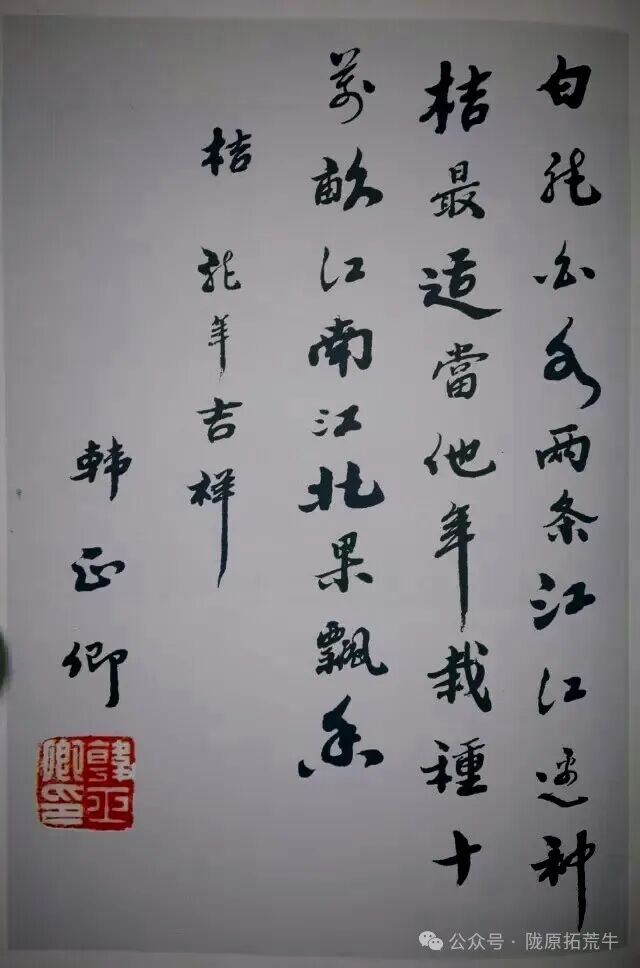 白龙白水两条江江边种
桔最适當他年栽種十
萬畝江南江北果飄香
桔 龙年吉祥
韩正卿
韓正卿印
公众号 · 陇原拓荒牛